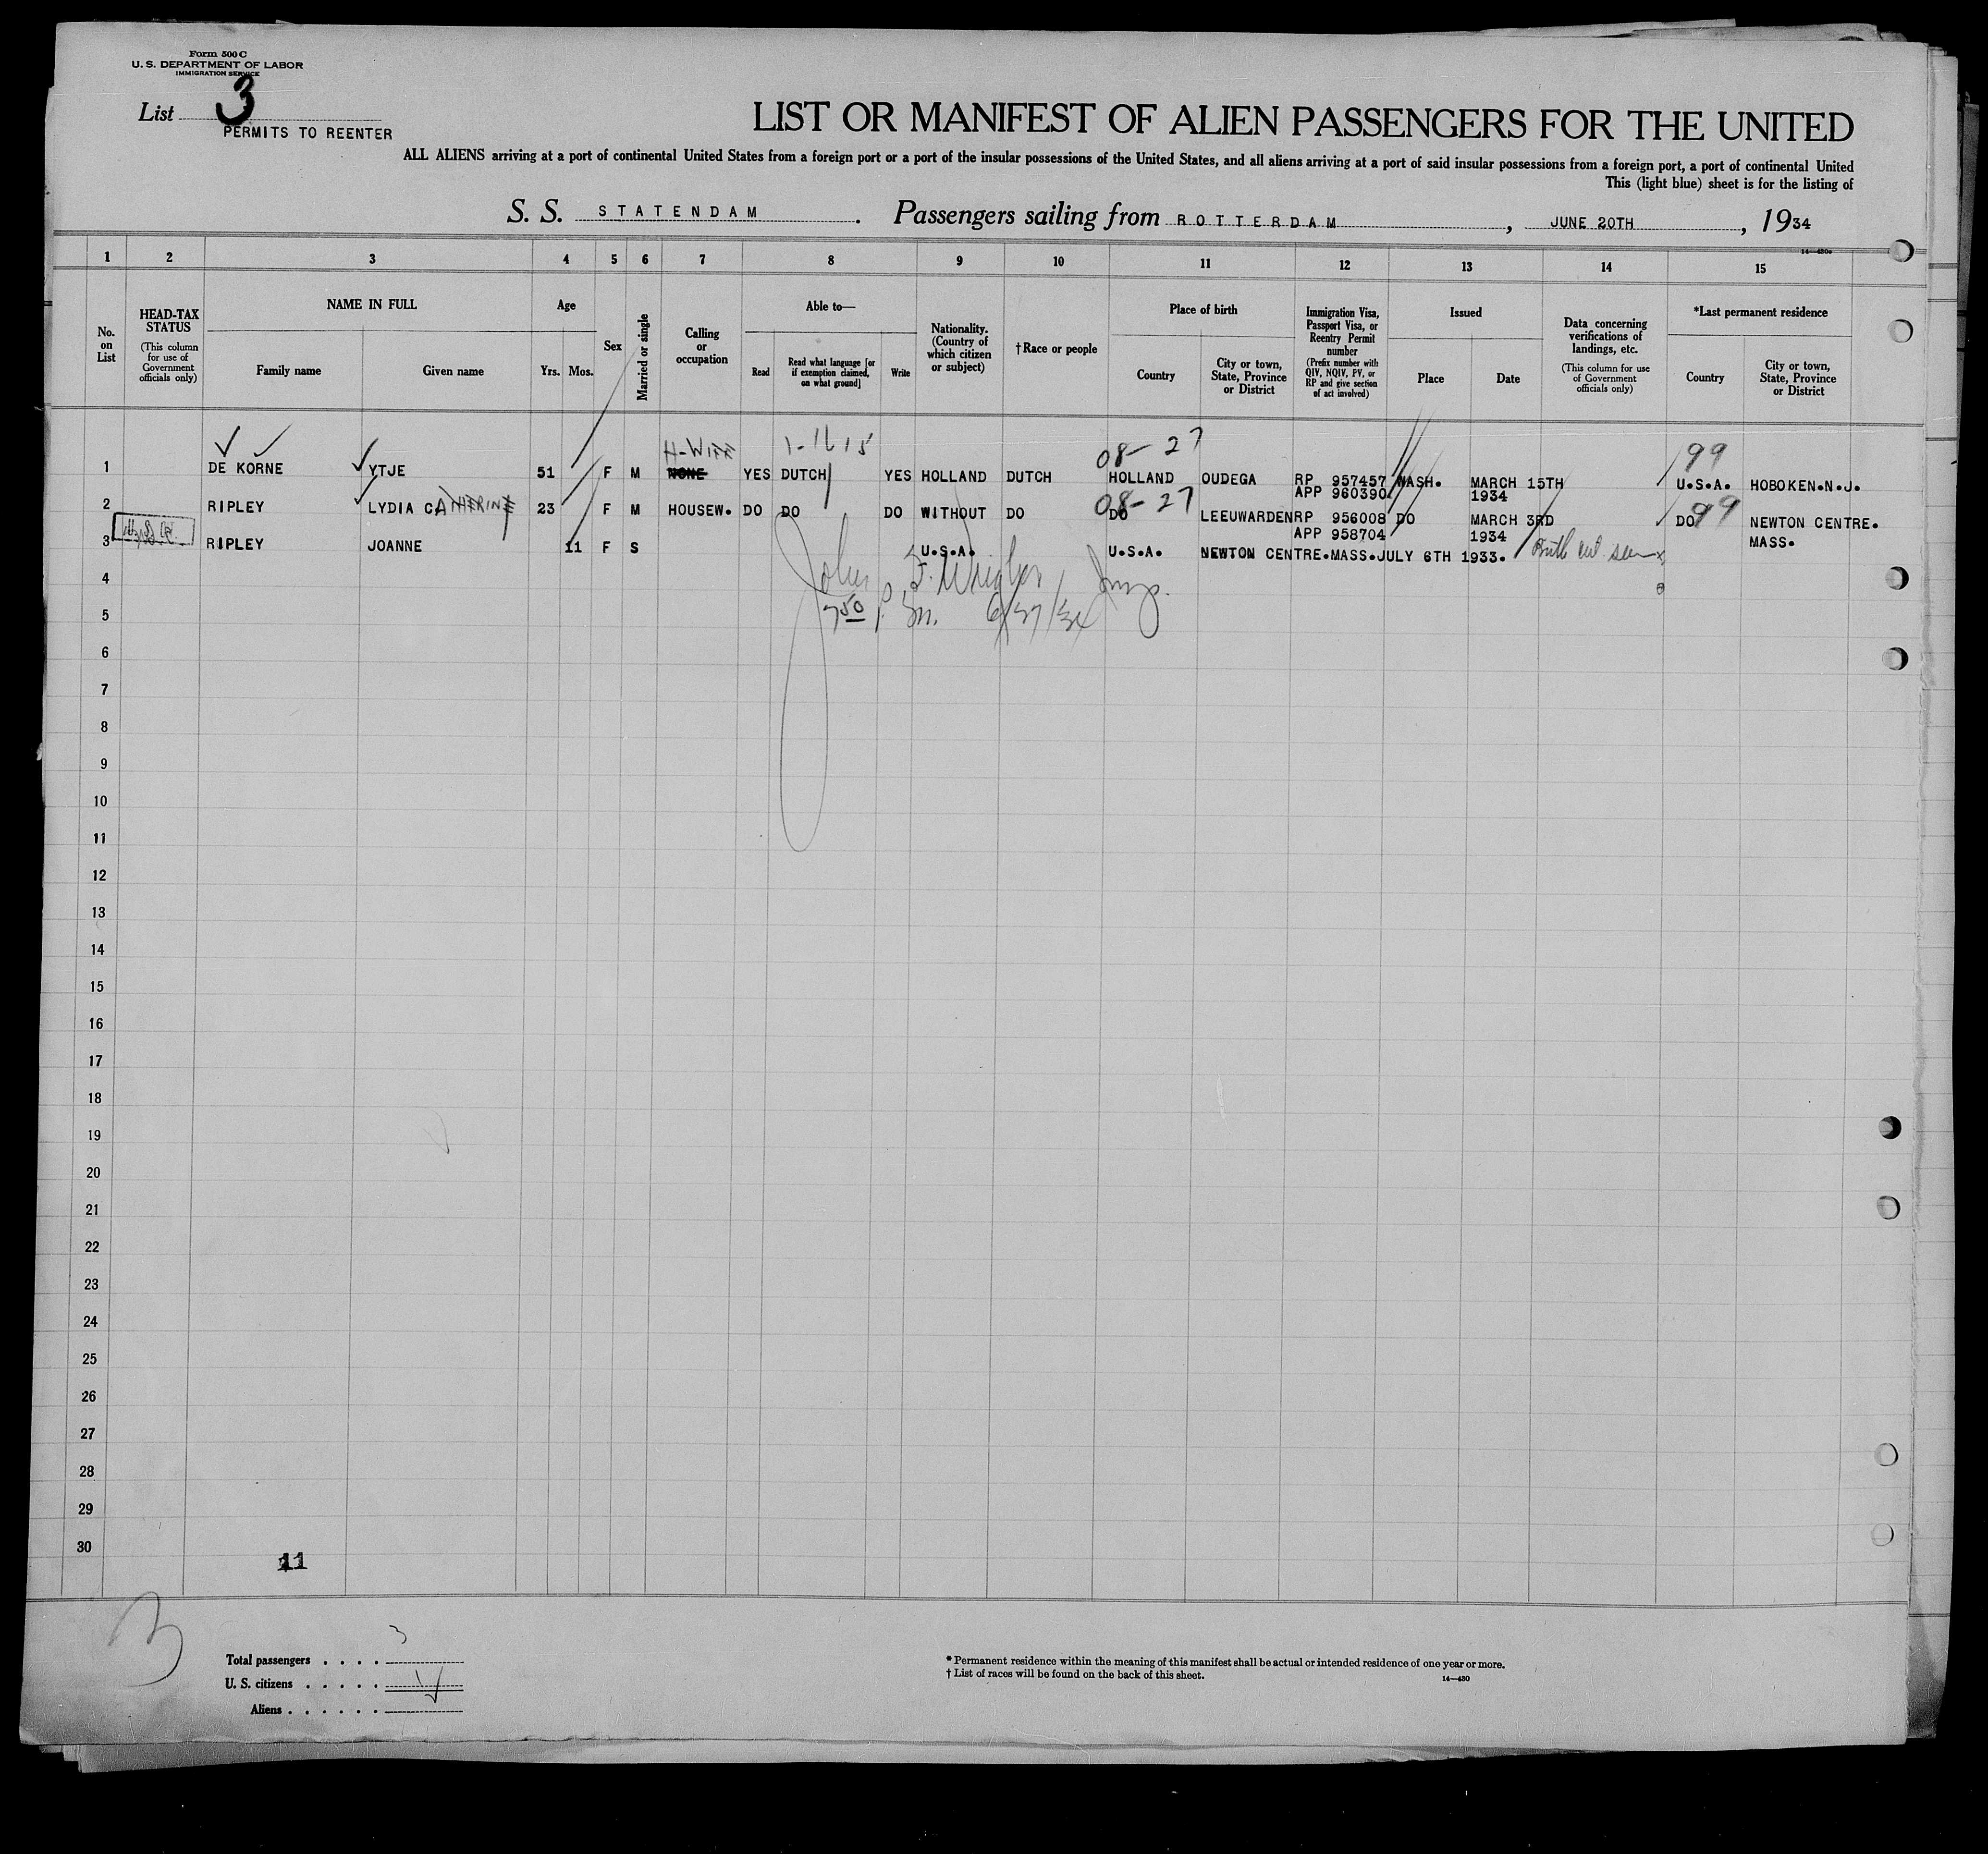 Form 500 C
U. S. DEPARTMENT OF LABOR
IMMIGRATION SERVICE
List 3
PERMITS TO REENTER
LIST OR MANIFEST OF ALIEN PASSENGERS FOR THE UNITED
ALL ALIENS arriving at a port of continental United States from a foreign port or a port of the insular possessions of the United States, and all aliens arriving at a port of said insular possessions from a foreign port, a port of continental United
This (light blue) sheet is for the listing of
S. S. STATENDAM. Passengers sailing from ROTTERDAM, JUNE 20TH, 1934
14—480a
1 2 3 4 5 6 7 8 9 10 11 12 13 14 15
No. on List
HEAD-TAX STATUS
(This column for use of Government officials only)
NAME IN FULL
Family name
Given name
Age
Yrs. Mos.
Sex
Married or single
Calling or occupation
Able to—
Read
Read what language [or if exemption claimed, on what ground]
Write
Nationality. (Country of which citizen or subject)
†Race or people
Place of birth
Country
City or town, State, Province or District
Immigration Visa, Passport Visa, or Reentry Permit number
(Prefix number with QIV, NQIV, PV, or RP and give section of act involved)
Issued
Place
Date
Data concerning verifications of landings, etc.
(This column for use of Government officials only)
*Last permanent residence
Country
City or town, State, Province or District
H-WIFE 08-27 99
1 DE KORNE YTJE 51 F M NONE YES DUTCH YES HOLLAND DUTCH HOLLAND OUDEGA RP 957457 WASH. MARCH 15TH U.S.A. HOBOKEN.N.J.
APP 960390 1934
08-27 99
2 RIPLEY LYDIA CATHERINE 23 F M HOUSEW. DO DO DO WITHOUT DO DO LEEUWARDEN RP 956008 DO MARCH 3RD DO NEWTON CENTRE.
APP 958704 1934 MASS.
3 RIPLEY JOANNE 11 F S U.S.A. U.S.A. NEWTON CENTRE.MASS.JULY 6TH 1933.
4
John F. Insp.
5
7 50 P. M. 6/27/34
6
7
8
9
10
11
12
13
14
15
16
17
18
19
20
21
22
23
24
25
26
27
28
29
30
11
3
Total passengers . . . . 3
U. S. citizens . . . . . 1
Aliens . . . . . .
* Permanent residence within the meaning of this manifest shall be actual or intended residence of one year or more.
† List of races will be found on the back of this sheet.
14—480